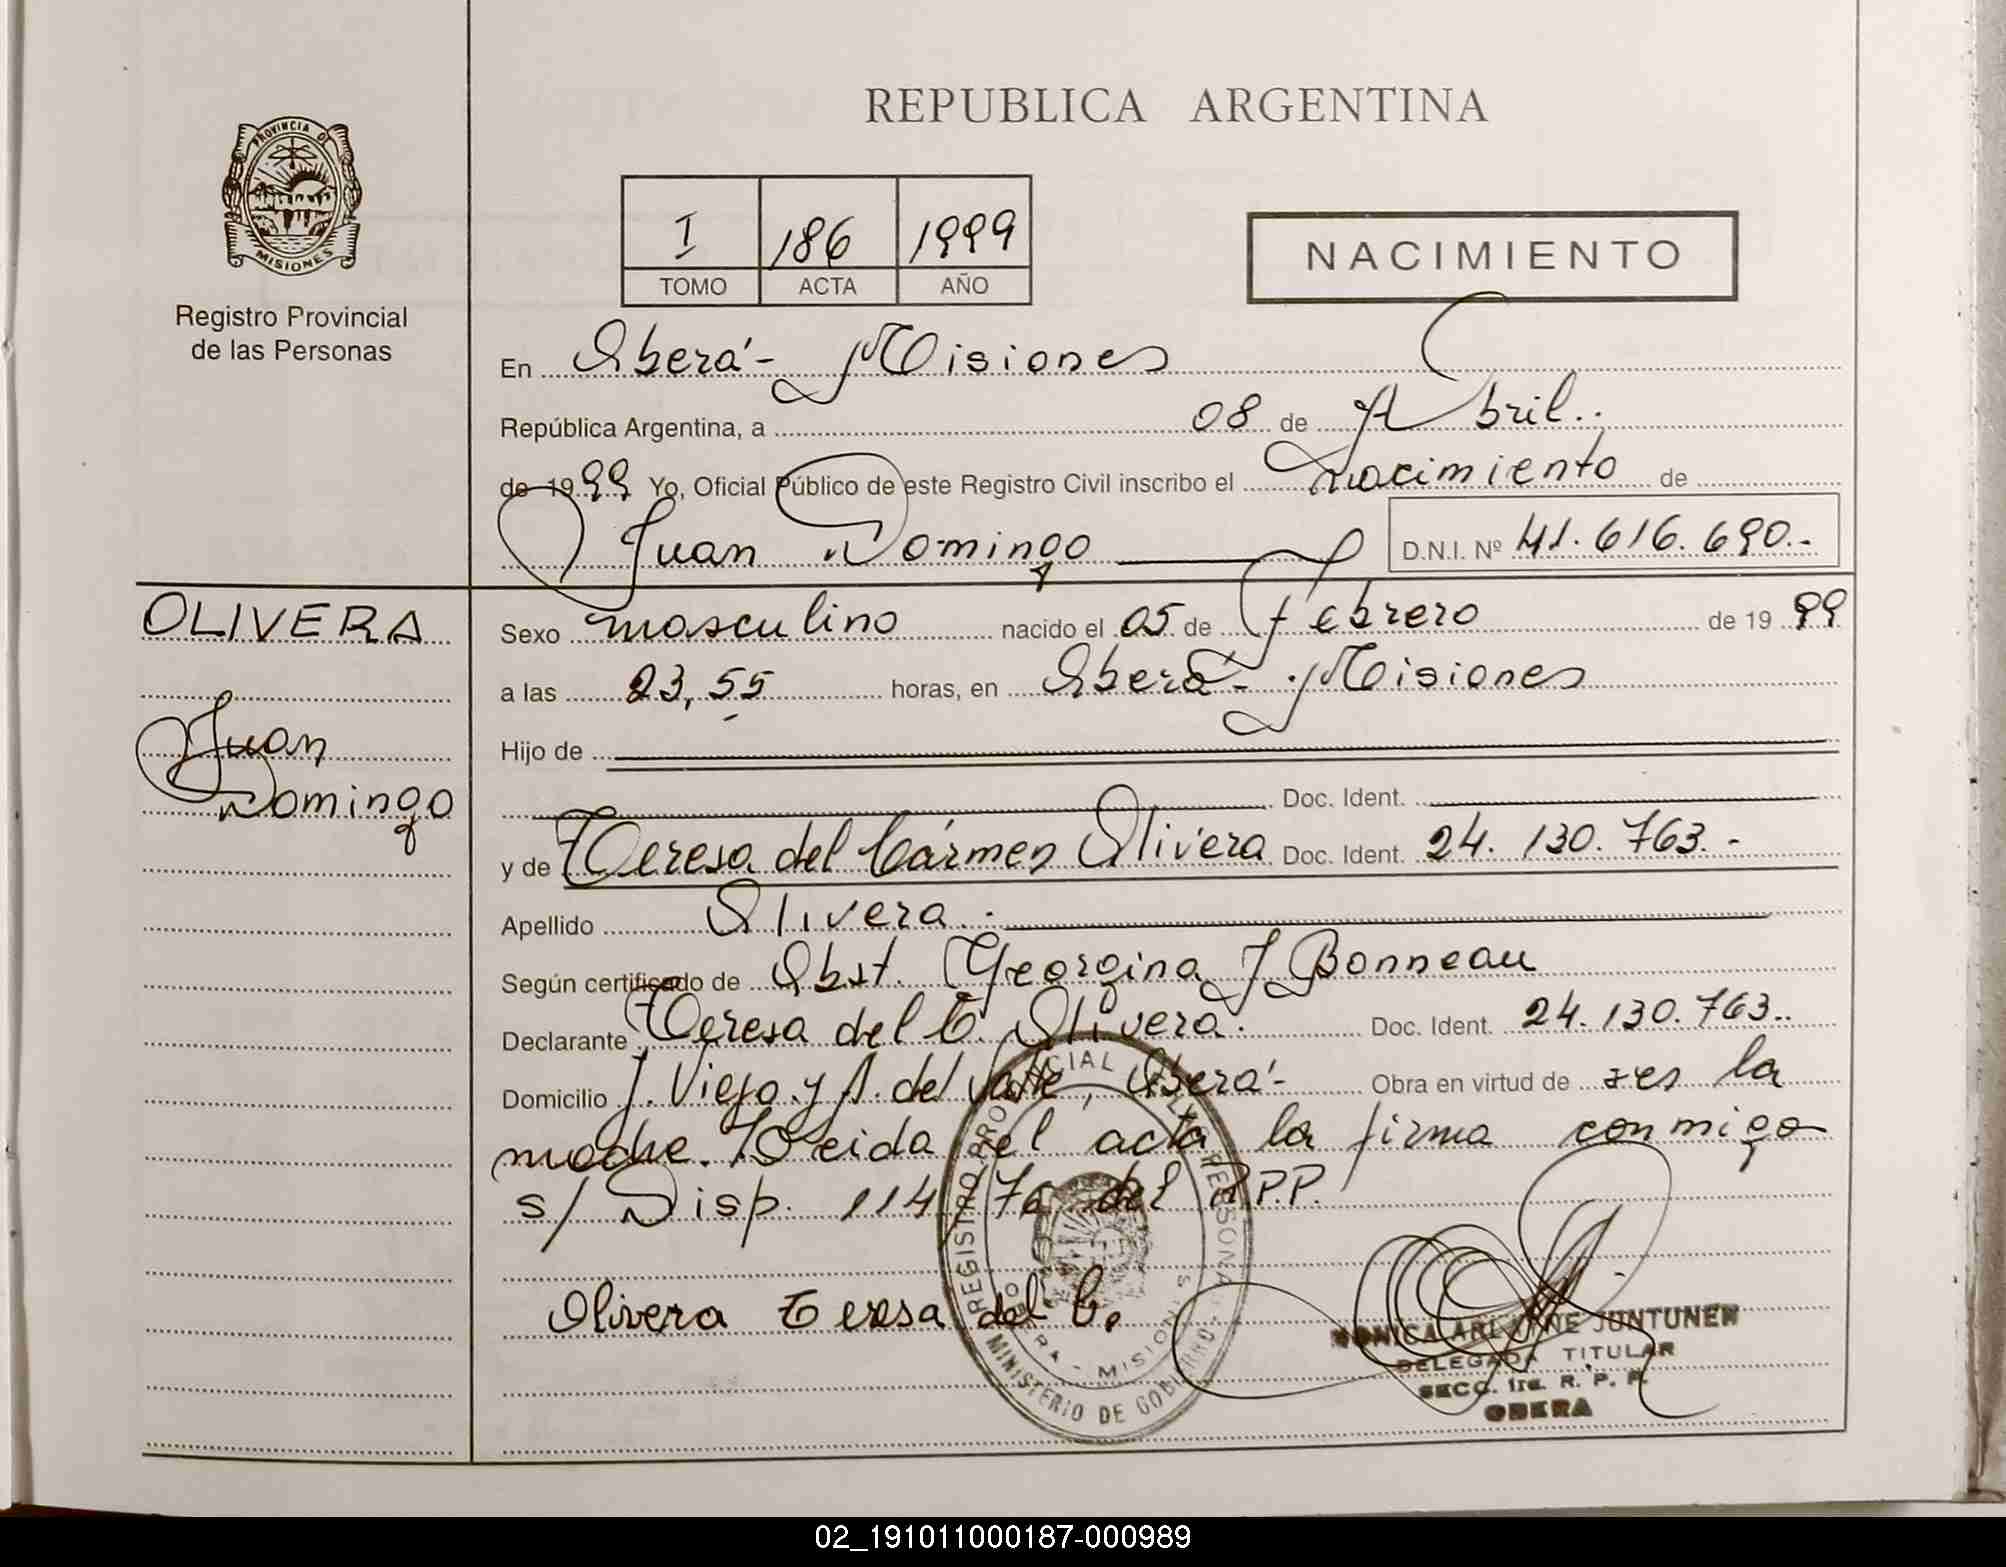 REPUBLICA ARGENTINA
PROVINCIA DE
MISIONES
Registro Provincial
de las Personas
I 186 1999
TOMO ACTA AÑO
NACIMIENTO
En Oberá - Misiones
República Argentina, a 08 de Abril.
de 1999 Yo, Oficial Público de este Registro Civil inscribo el nacimiento de
Juan Domingo D.N.I. Nº 41.616.690.-
OLIVERA
Juan
Domingo
Sexo masculino nacido el 05 de Febrero de 1999
a las 23,55 horas, en Oberá - Misiones
Hijo de
Doc. Ident.
y de Teresa del Cármen Olivera Doc. Ident. 24.130.763.-
Apellido Olivera.
Según certificado de Obst. Georgina J Bonneau
Declarante Teresa del C. Olivera. Doc. Ident. 24.130.763..
Domicilio J. Viejo y A. del Valle, Oberá - Obra en virtud de ser la
madre. Leida el acta la firma conmigo
s/ Disp. 114/76 del R.P.P.
Olivera Teresa del C.
REGISTRO PROVINCIAL DE LAS PERSONAS
OBERA - MISIONES
MINISTERIO DE GOBIERNO
MONICA ARLENNE JUNTUNEN
DELEGADA TITULAR
SECC. 1ra. R. P. P.
OBERA
02_191011000187-000989